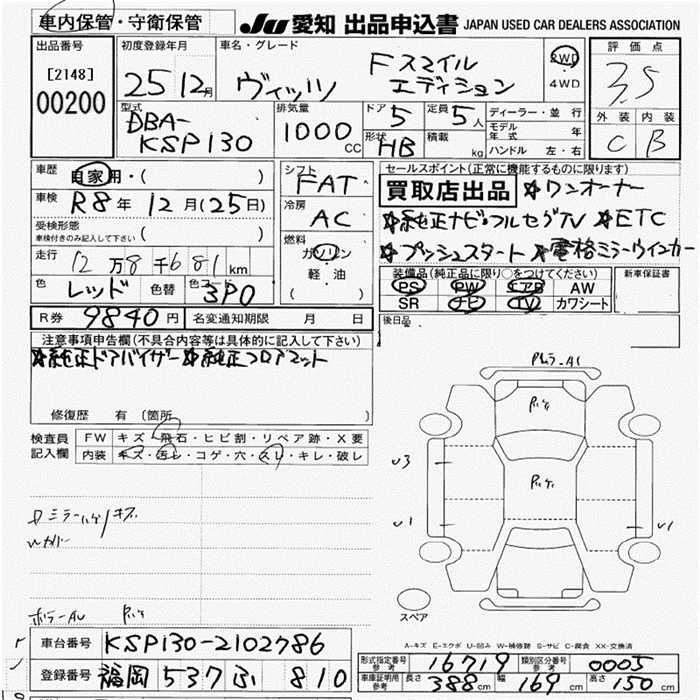 車内保管・守衛保管
JU 愛知 出品申込書 JAPAN USED CAR DEALERS ASSOCIATION
出品番号 初度登録年月 車名・グレード 評価点
[2148] 00200
25 12月 ヴィッツ Fスマイルエディション 2WD 4WD 3.5
型式 DBA-KSP130 排気量 1000CC ドア 5 定員 5人 ディーラー・並行
形状 HB 積載 kg モデル年式 年 ハンドル 左・右
外装 C 内装 B
車歴 自家用・( )
シフト FAT
セールスポイント(正常に機能するものに限ります)
買取店出品 ☆ワンオーナー
車検 R8年12月(25日)
冷房 AC
☆純正ナビ・フルセグTV ☆ETC
受検形態 車検付きのみ記入して下さい ( )
☆プッシュスタート ☆電格ミラーウインカー
走行 12万8千681km
燃料 ガソリン 軽油 ( )
装備品(純正品に限り○をつけてください) 新車保証書
色 レッド 色替 色コード 3P0
PS PW エアB AW
SR ナビ TV カワシート
R券 9840円 名変通知期限 月 日
後日品
注意事項申告欄(不具合内容等は具体的に記入して下さい)
☆純正ドアバイザー ☆純正フロアマット
修復歴 有(箇所 )
検査員記入欄 FW キズ・飛石・ヒビ割・リペア跡・X要
内装 キズ・汚レ・コゲ・穴・スレ・キレ・破レ
U3
U1
スペア
A-キズ E-エクボ U-凹み W-補修跡 S-サビ C-腐食 XX-交換済
車台番号 KSP130-2102786
登録番号 福岡 537 ふ 810
形式指定番号 参考 16719 類別区分番号 参考 0005
車庫証明用 参考 長さ 388cm 幅 169cm 高さ 150cm